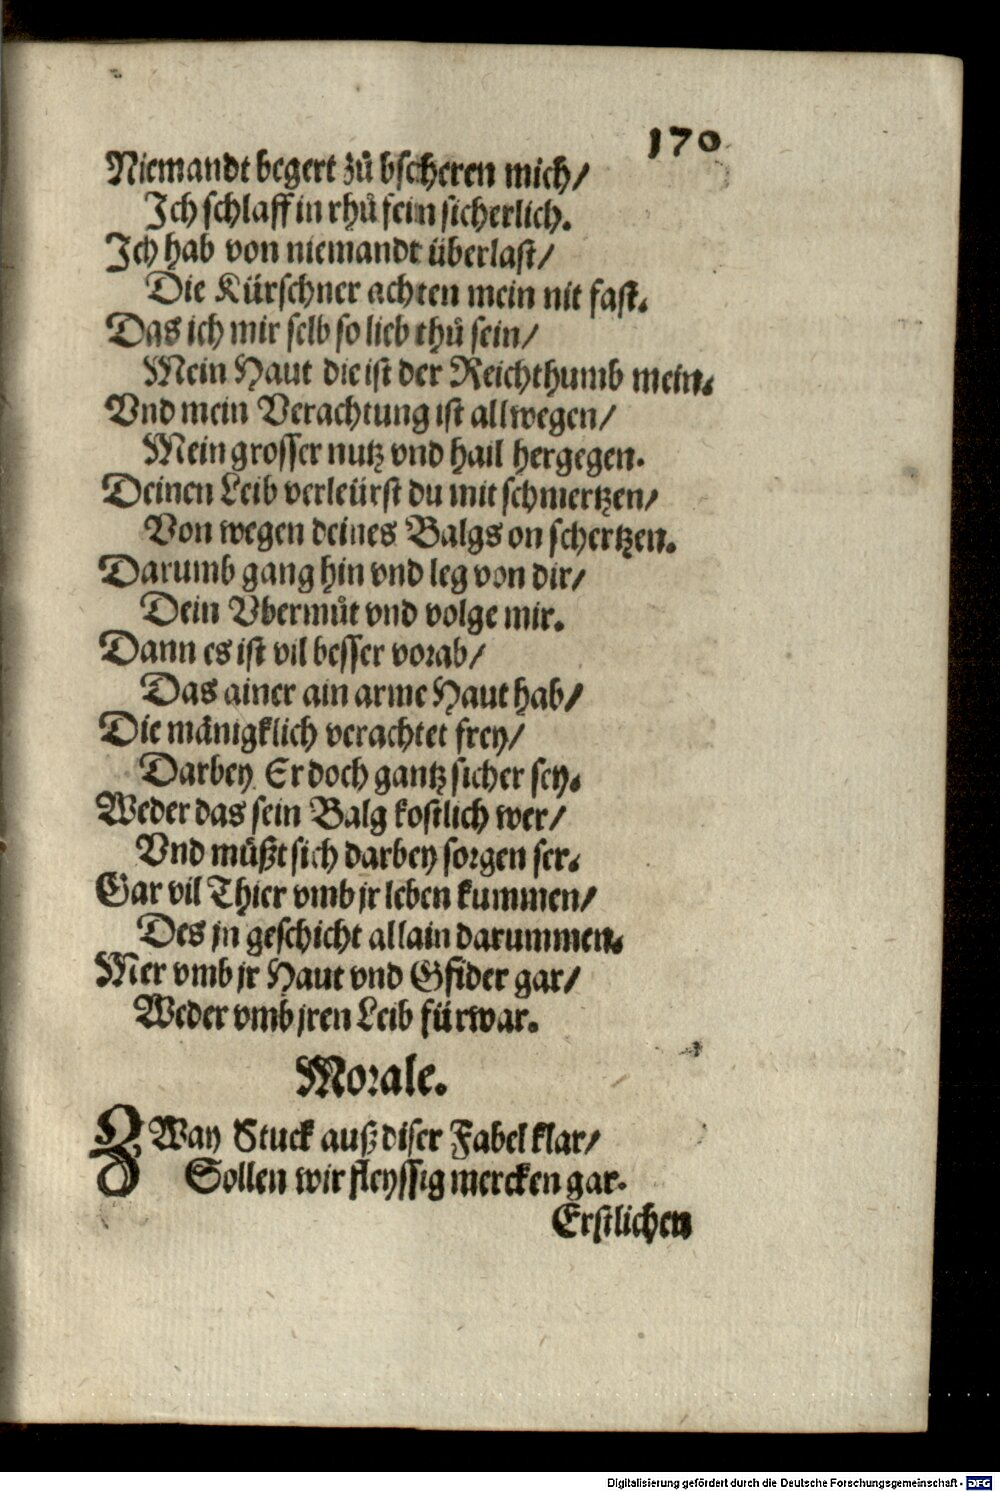 170
Niemandt begert zů bscheren mich/
Ich schlaff in rhů fein sicherlich.
Ich hab von niemandt überlast/
Die Kürschner achten mein nit fast.
Das ich mir selb so lieb thů sein/
Mein Haut die ist der Reichthumb mein.
Vnd mein Verachtung ist allwegen/
Mein grosser nutz vnd hail hergegen.
Deinen Leib verleürst du mit schmertzen/
Von wegen deines Balgs on schertzen.
Darumb gang hin vnd leg von dir/
Dein Vbermůt vnd volge mir.
Dann es ist vil besser vorab/
Das ainer ain arme Haut hab/
Die mänigklich verachtet frey/
Darbey Er doch gantz sicher sey.
Weder das sein Balg kostlich wer/
Vnd müßt sich darbey sorgen ser.
Gar vil Thier vmb jr leben kummen/
Des jn geschicht allain darummen.
Mer vmb jr Haut vnd Gfider gar/
Weder vmb jren Leib fürwar.
Morale.
ZWay Stuck auß diser Fabel klar/
Sollen wir fleyssig mercken gar.
Erstlichen
Digitalisierung gefördert durch die Deutsche Forschungsgemeinschaft - DFG